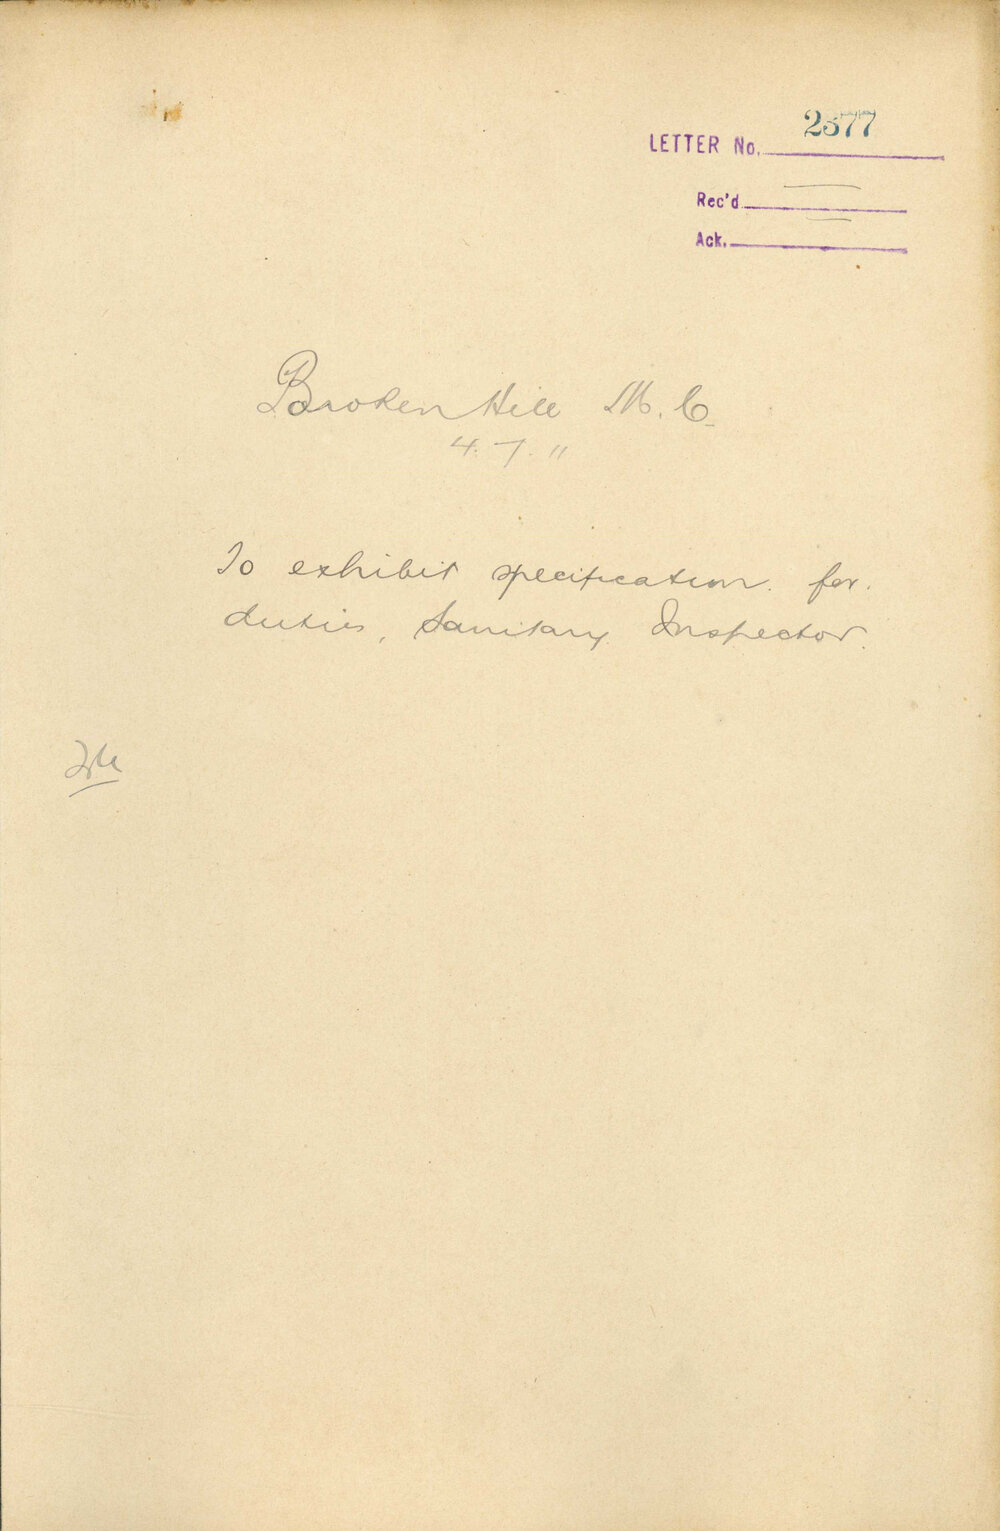 2377
LETTER No.
Rec'd
Ack.
Broken Hill M. C.
4. 7. 11
To exhibit specification for.
duties, Sanitary Inspector.